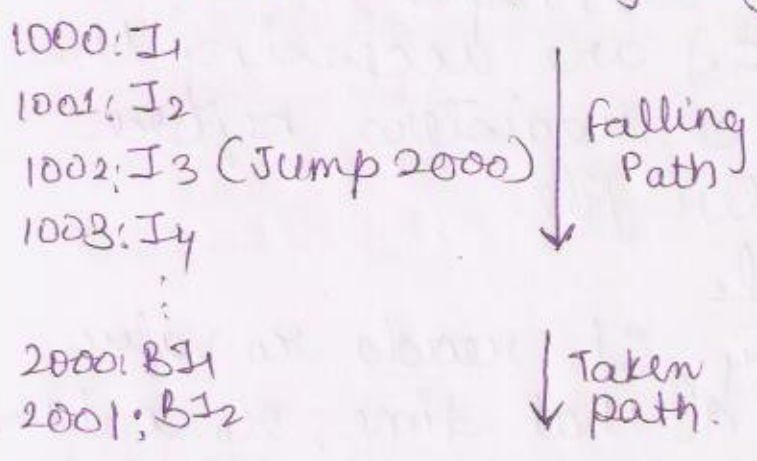 1000: I1
1001: I2
1002: I3 (Jump 2000)
1003: I4
falling
Path
2000: BI1
2001: BI2
Taken
path.